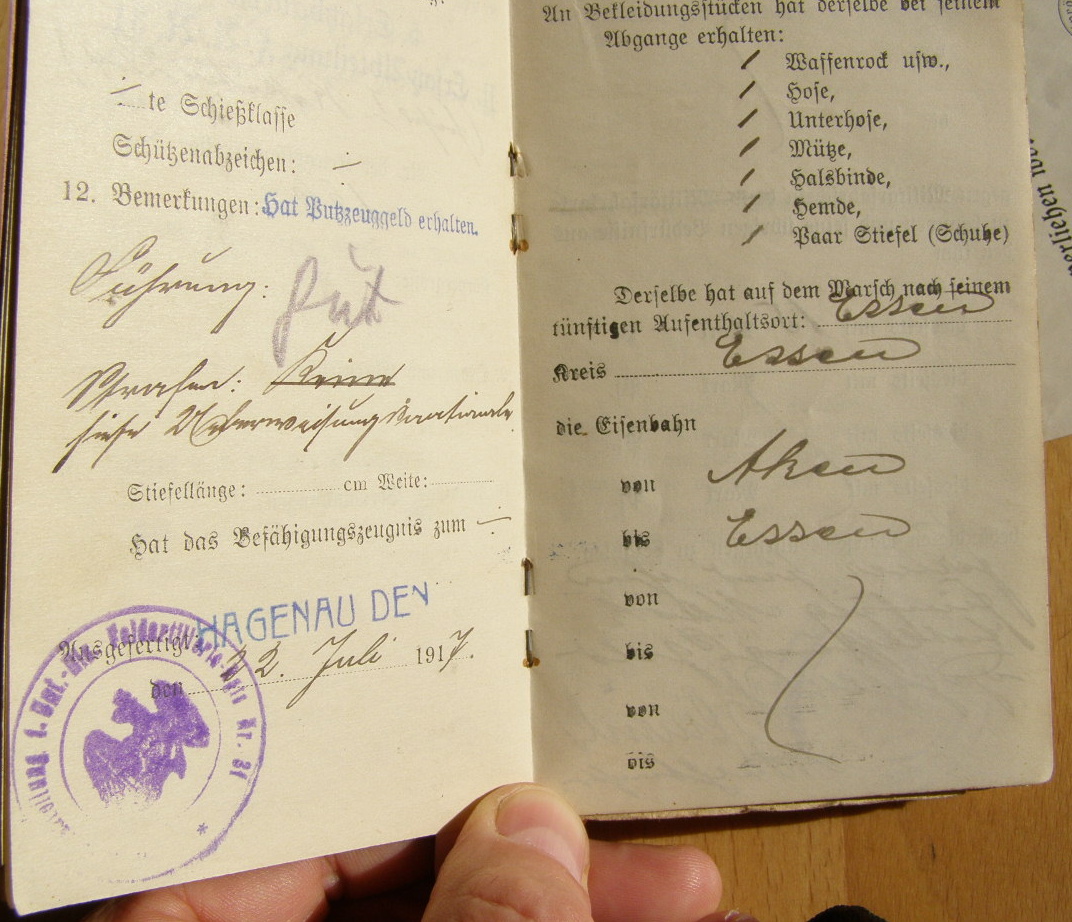 te Schießklasse
Schützenabzeichen: —
12. Bemerkungen: Hat Putzzeuggeld erhalten.
Führung: gut
Strafen: Keine
siehe Ueberweisungsnationale
Stiefellänge: cm Weite:
Hat das Befähigungszeugnis zum —
HAGENAU DEN
Ausgefertigt
den 22. Juli 1917.
Feldartillerie-Regts Nr. 31
An Bekleidungsstücken hat derselbe bei seinem
Abgange erhalten:
/ Waffenrock usw.,
/ Hose,
/ Unterhose,
/ Mütze,
/ Halsbinde,
/ Hemde,
/ Paar Stiefel (Schuhe)
Derselbe hat auf dem Marsch nach seinem
künftigen Aufenthaltsort: Essen
Kreis Essen
die Eisenbahn
von Aken
bis Essen
von
bis
von
bis